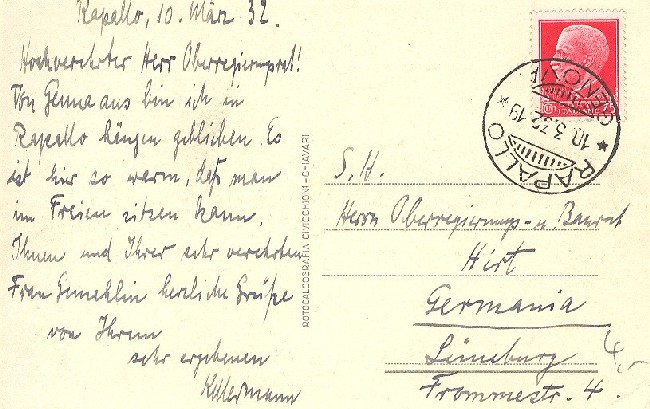 Rapallo, 10. März 32.
Hochverehrter Herr Oberregierungsrat!
Von Genua aus bin ich in
Rapallo hängen geblieben. Es
ist hier so warm, daß man
im Freien sitzen kann.
Ihnen und Ihrer sehr verehrten
Frau Gemahlin herzliche Grüße
von Ihrem
sehr ergebenen
Kellermann
ROTOCALCOGRAFIA CIVICCHIONI - CHIAVARI
RAPALLO
10.3.32.19
GENOVA
S. H.
Herrn Oberregierungs- u. Baurat
Hirt
Germania
Lüneburg
Frommestr. 4.